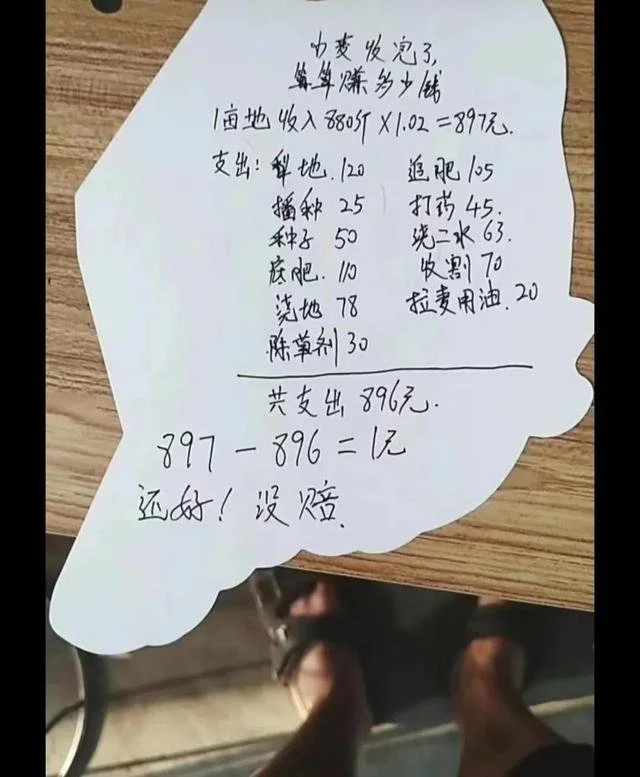 小麦收完了,
算算赚多少钱
1亩地收入880斤×1.02=897元.
支出:犁地.120 追肥105
播种 25 打药45.
种子 50 浇二水63.
底肥.110 收割70
浇地 78 拉麦用油.20
除草剂30
共支出896元.
897-896=1元
还好!没赔.